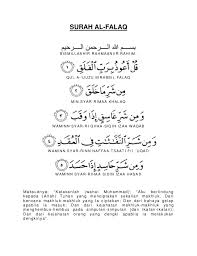 SURAH AL-FALAQ
بسم الله الرحمن الرحيم
BISMILLAAHIR RAHMAANIR RAHIIM
قُلْ أَعُوذُ بِرَبِّ ٱلْفَلَقِ ١
QUL A'UUZU BIRABBIL FALAQ
مِن شَرِّ مَا خَلَقَ ٢
MIN SYAR RIMAA KHALAQ
وَمِن شَرِّ غَاسِقٍ إِذَا وَقَبَ ٣
WAMINN SYAR RI GHAA SIQIN IZAA WAQAB
وَمِن شَرِّ ٱلنَّفَّٰثَٰتِ فِى ٱلْعُقَدِ ٤
WAMINN SYAR RINN NAFFAA TSAATI FIL UQAD
وَمِن شَرِّ حَاسِدٍ إِذَا حَسَدَ ٥
WAMINN SYAR RI HAA SIDIN IZAA HASAD
"Katakanlah (wahai Muhammad); "Aku berlindung
kepada (Allah) Tuhan yang menciptakan sekalian makhluk. Dari
makhluk-makhluk yang Ia ciptakan; Dan dari bahaya gelap
apabila ia masuk; Dan dari kejahatan makhluk-makhluk yang
menghembus-hembus pada simpulan-simpulan (dan ikatan-ikatan);
Dan dari kejahatan orang yang dengki apabila ia melakukan
dengkinya".